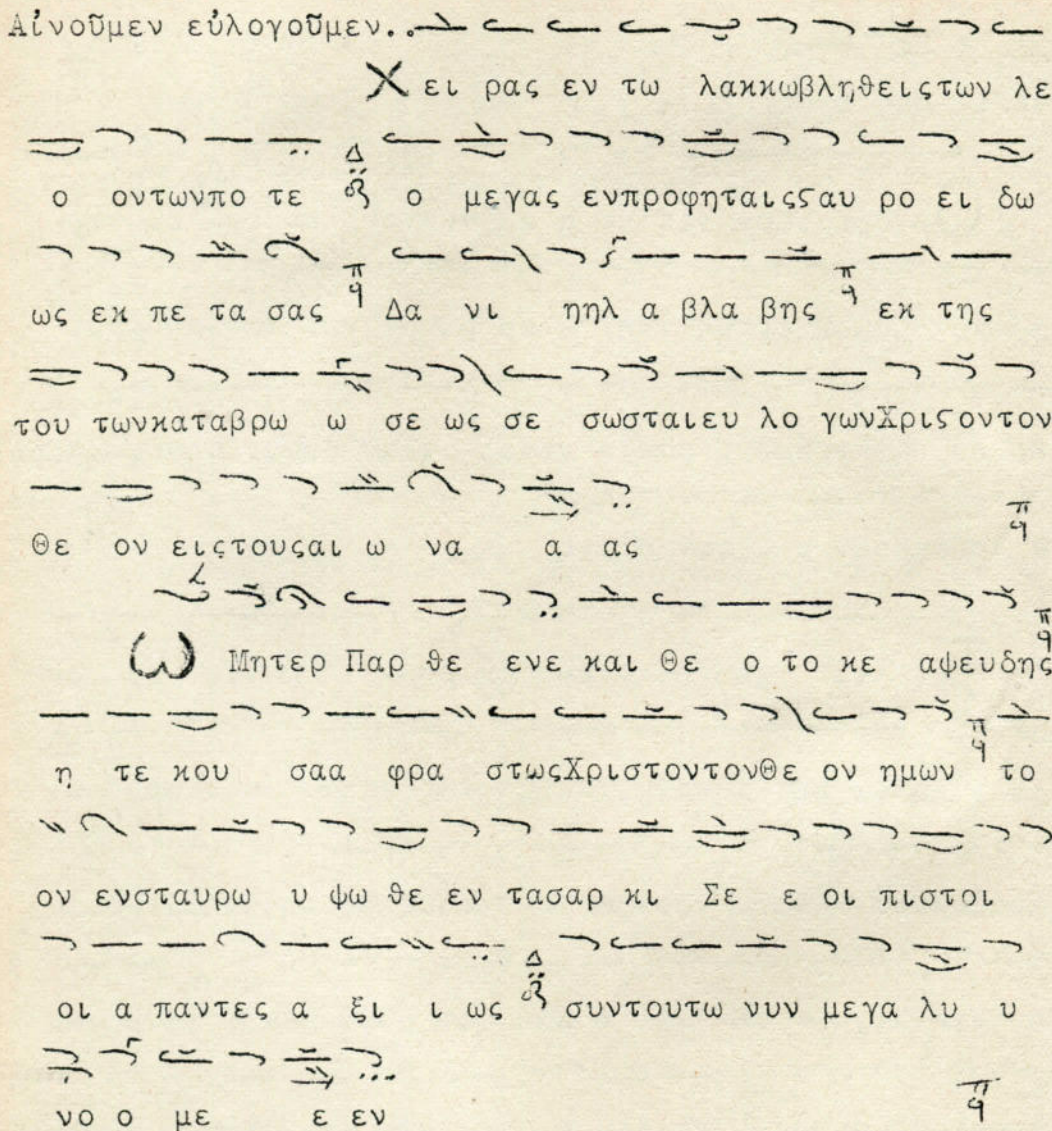 Αἰνοῦμεν εὐλογοῦμεν..
Χ ει ρας εν τω λακκωβληθειςτων λε
ο οντωνπο τε Δ ο μεγας ενπροφηταιςϛαυ ρο ει δω
ως εκ πε τα σας π q Δα νι ηηλ α βλα βης π q εκ της
του τωνκαταβρω ω σε ως σε σωσταιευ λο γωνΧριϛοντον
Θε ον ειςτουςαι ω να α ας π q
Ω Μητερ Παρ θε ενε και Θε ο το κε αψευδης π q
η τε κου σαα φρα στωςΧριστοντονΘε ον ημων π q το
ον ενσταυρω υ ψω θε εν τασαρ κι Σε ε οι πιστοι
οι α παντες α ξι ι ως Δ συντουτω νυν μεγα λυ υ
νο ο με ε εν π q